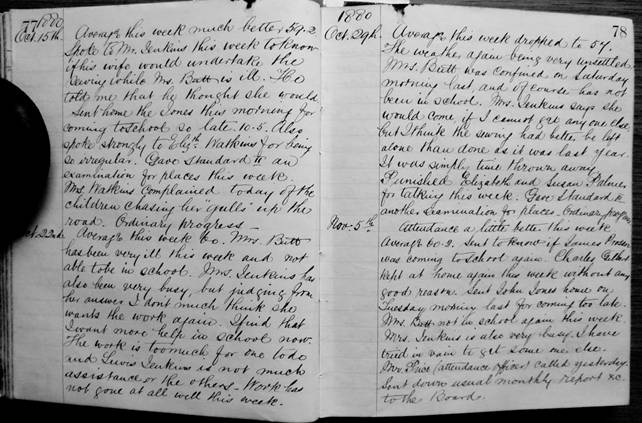 77
1880
Oct. 15th
Average this week much better 59.2
Spoke to Mr. Jenkins this week to know
if his wife would undertake the
sewing while Mrs. Butt is ill. He
told me that he thought she would.
Sent home the Jones this morning for
coming to school so late. 10.5. Also
spoke strongly to Elizth. Watkins for being
so irregular. Gave Standard II an
examination for places this week.
Mrs Watkins complained today of the
children chasing her "gulls" up the
road. Ordinary progress —
Oct. 22nd
Average this week 60. Mrs. Butt
has been very ill this week and not
able to be in school. Mrs. Jenkins has
also been very busy, but judging from
her answer I don't much think she
wants the work again. I find that
I want more help in school now.
The work is too much for one to do
and Lewis Jenkins is not much
assistance or the others. Work has
not gone at all well this week.
78
1880
Oct. 29th.
Average this week dropped to 57.
The weather again being very unsettled.
Mrs. Butt was confined on Saturday
morning last, and of course has not
been in school. Mrs. Jenkins says she
would come if I cannot get any one else,
but I think the sewing had better be left
alone than done as it was last year.
It was simply time thrown away.
Punished Elizabeth and Susan Palmer
for talking this week. Gave Standard
another examination for places. Ordinary progress
Nov. 5th.
Attendance a little better this week
Average 60.2. Sent to know if James
was coming to school again. Charles
kept at home again this week without any
good reason. Sent John Jones home on
Tuesday morning last for coming too late.
Mrs. Butt not in school again this week
Mrs. Jenkins is also very busy. I have
tried in vain to get some one else.
Mr. Price (attendance officer) called yesterday.
Sent down usual monthly report &c.
to the Board.